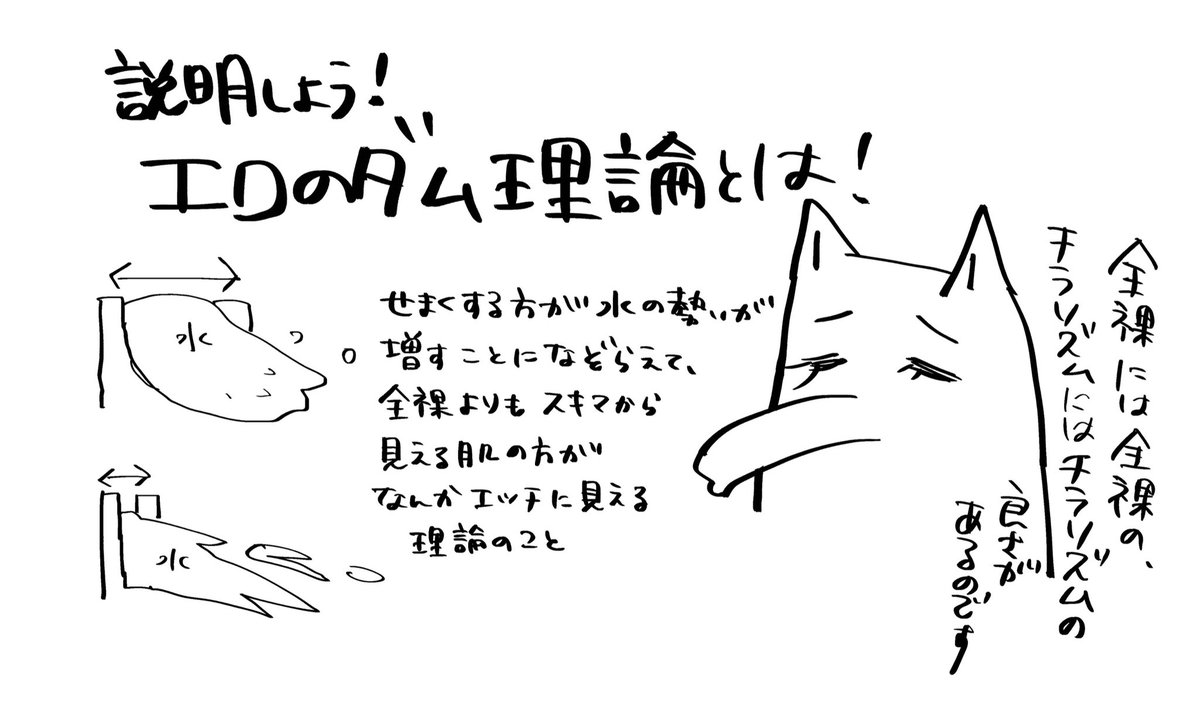 説明しよう!
エロのダム理論とは!
水
せまくする方が水の勢いが
増すことになぞらえて、
全裸よりもスキマから
見える肌の方が
なんかエッチに見える
理論のこと
水
全裸には全裸の、
チラリズムにはチラリズムの
良さが
あるのです